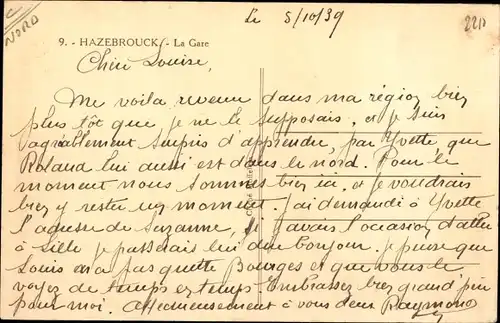 NORD
Le 5/10/39
9. - HAZEBROUCK - La Gare
Chère Louise,
Me voila revenu dans ma région bien
plus tôt que je ne le supposais, et je suis
agréablement surpris d'apprendre, par Yvette que
Roland lui aussi est dans le nord. Pour le
moment nous sommes bien ici, et je voudrais
bien y rester un moment. J'ai demandé à Yvette
l'adresse de Suzanne, si j'avais l'occasion d'aller
à Lille je passerais lui dire bonjour. Je pense que
Louis n'a pas quitté Bourges et que vous le
voyez de temps en temps. Embrassez bien grand'père
pour moi. Affectueusement à vous deux Raymond